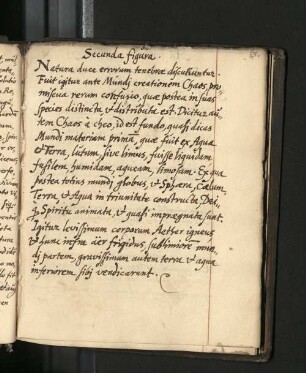 Secunda figura.
Natura duce errorum tenebræ discutiuntur.
Fuit igitur ante Mundi creationem Chaos, pro-
miscua rerum confusio, quæ postea in suas
species distincta et distributa est. Dicitur au-
tem Chaos à cheo, id est fundo, quasi dicas
Mundi materiam primā, quæ fuit ex Aqua
et Terra, lutum, sive limus, fuisse liquidam
fusilem, humidam, aqueam, limosam. Ex qua
postea totius mundi globus, et Sphæra, Cælum,
Terra, et Aqua in triunitate constructa Dei,
Spiritu animata, et quasi imprægnata sunt.
Igitur levissimum corporum Aether igneus
et hunc infra aër frigidus, sublimiorē mun-
di partem, gravissimum autem terra et aqua
inferiorem sibi vendicarunt.